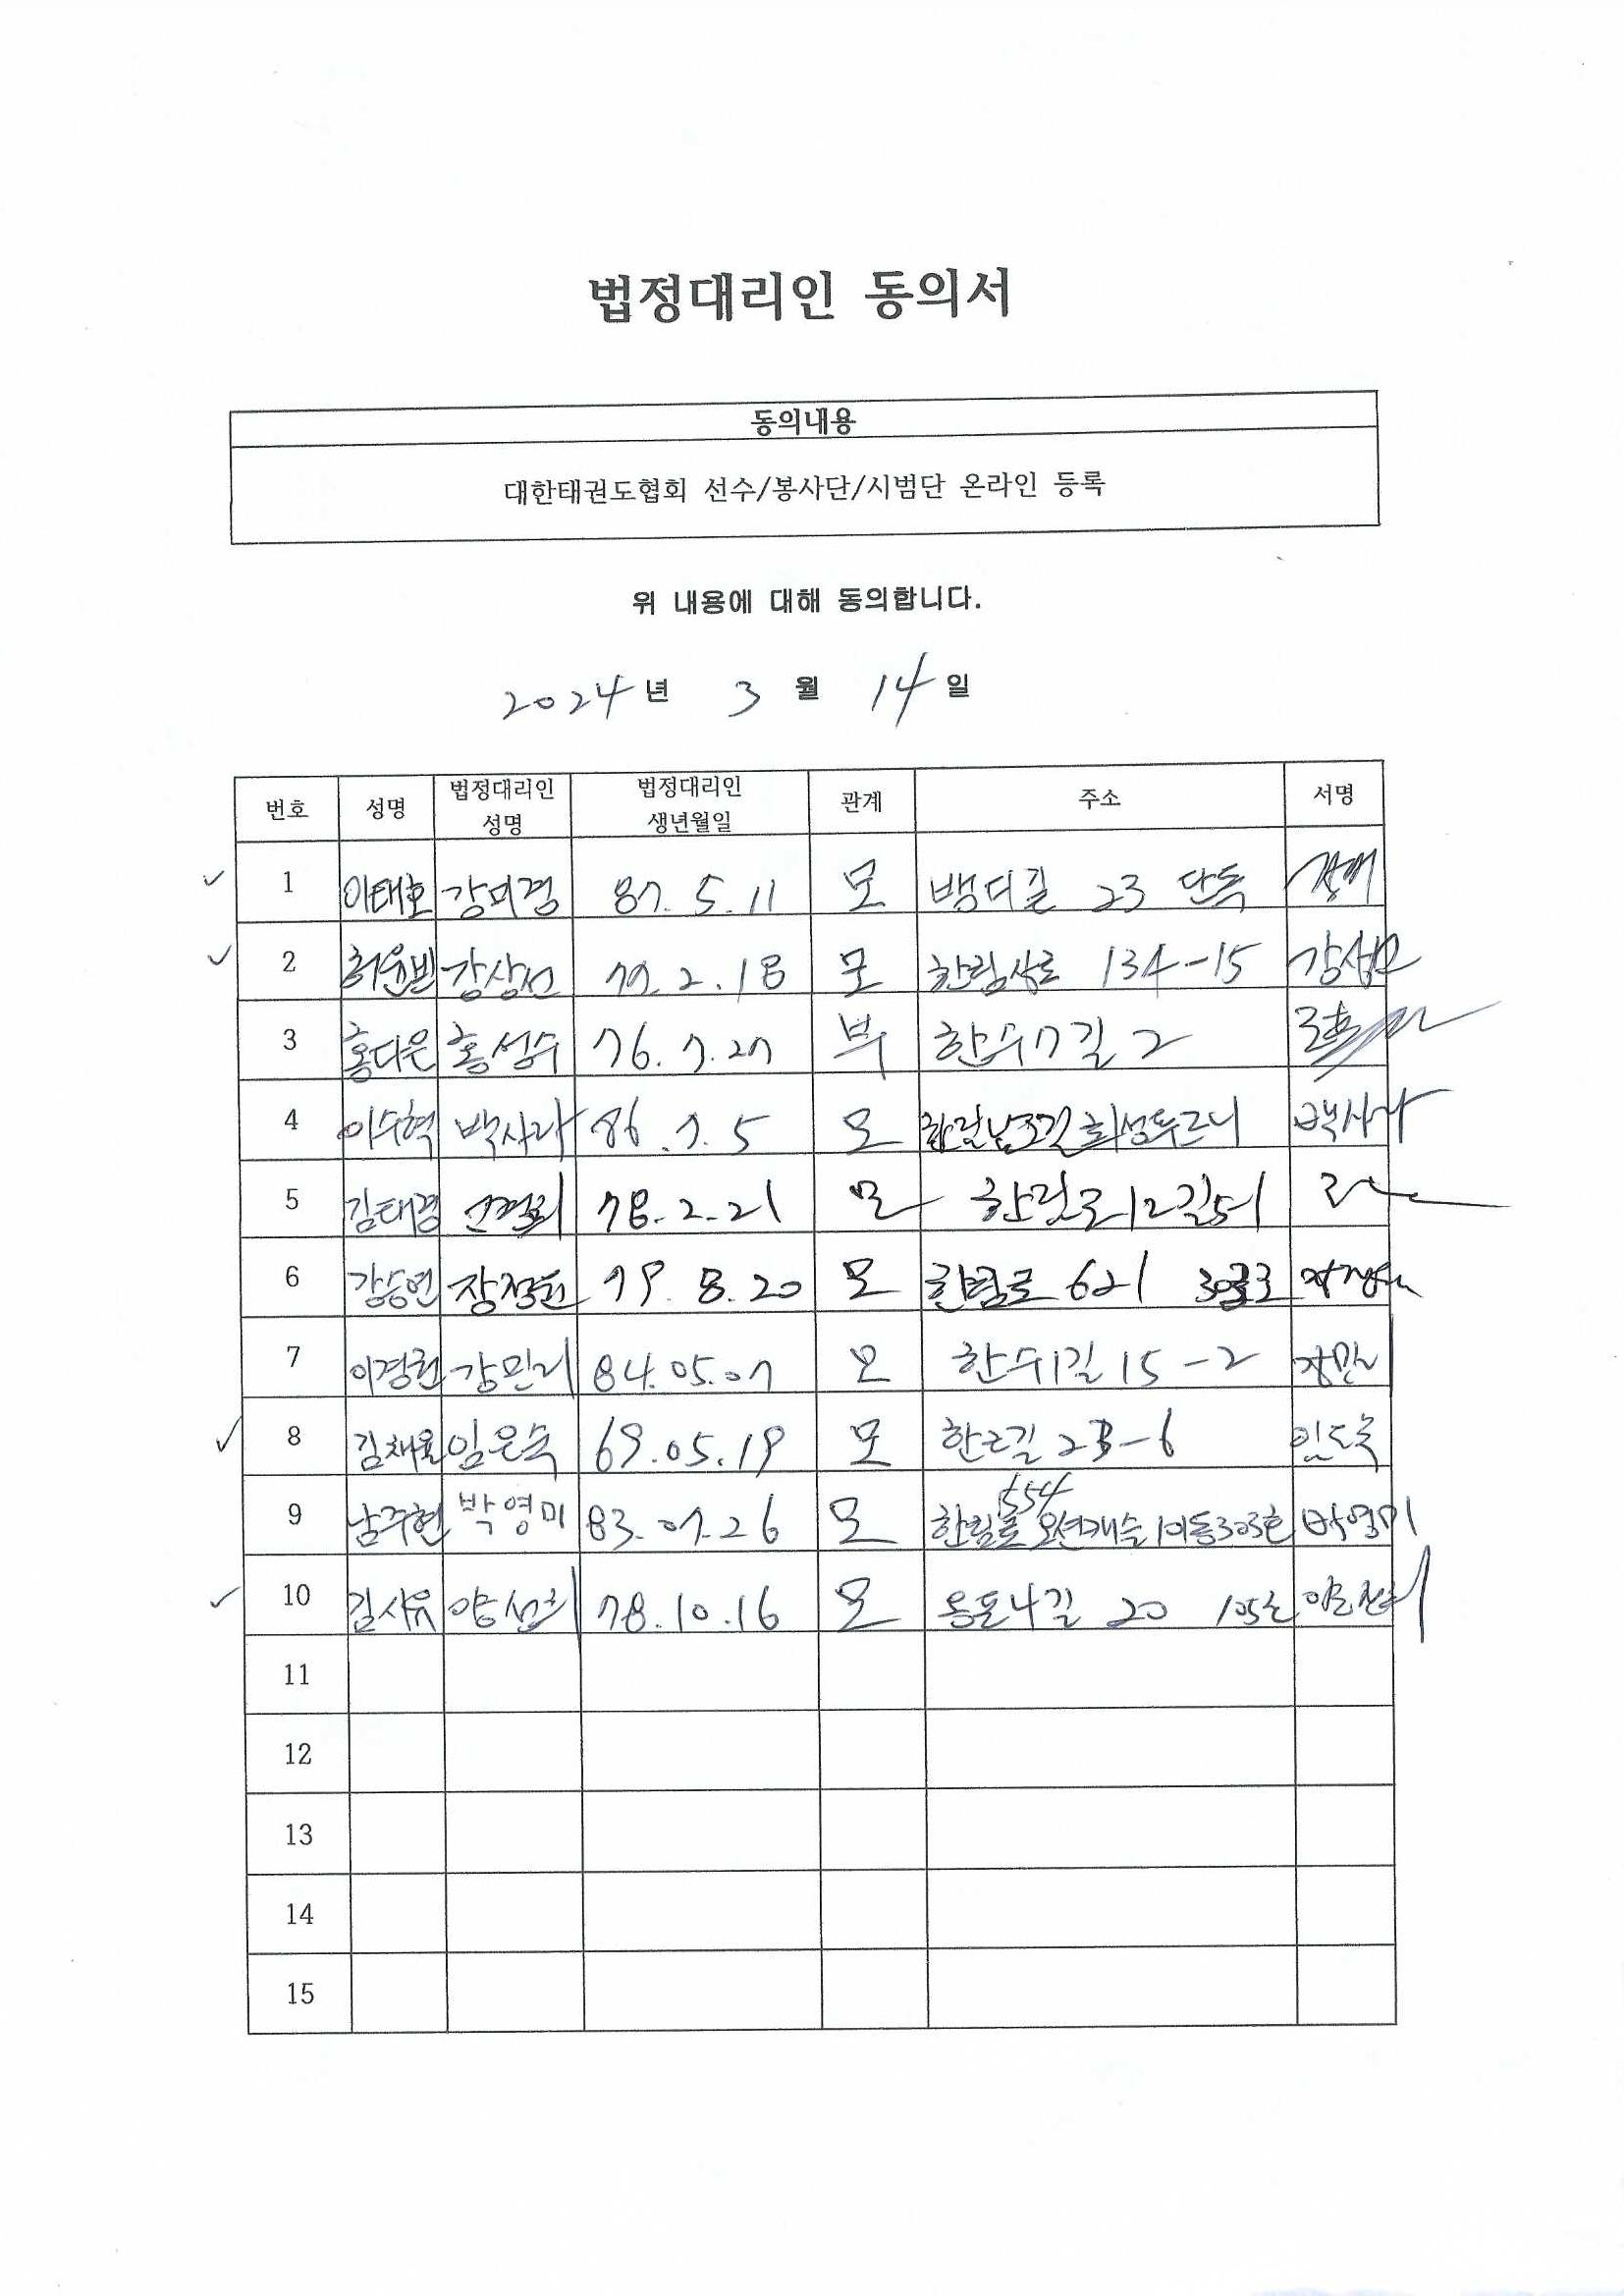 법정대리인 동의서
동의내용
대한태권도협회 선수/봉사단/시범단 온라인 등록
위 내용에 대해 동의합니다.
2024년 3 월 14 일
번호 성명 법정대리인 성명 법정대리인 생년월일 관계 주소 서명
1 이태호 강미경 87. 5. 11 모 뱅디길 23 단독
2 허윤빈 강상선 79. 2. 18 모 한림상로 134-15
3 홍다은 홍성수 76. 7. 27 부 한수7길 2
4 이수혁 박사라 86. 7. 5 모 박사라
5 김태경 78. 2. 21 모 한림로12길51
6 강승연 79. 8. 20 모 한림로 621
7 이경헌 강민지 84. 05. 07 모 한수1길 15-2
8 김채율 임은숙 69. 05. 19 모 23-6
9 남주현 박영미 83. 07. 26 모 한림로 554 오션캐슬 101동303호 박영미
10 김시유 양선희 78. 10. 16 모 옹포4길 20 105호
11
12
13
14
15